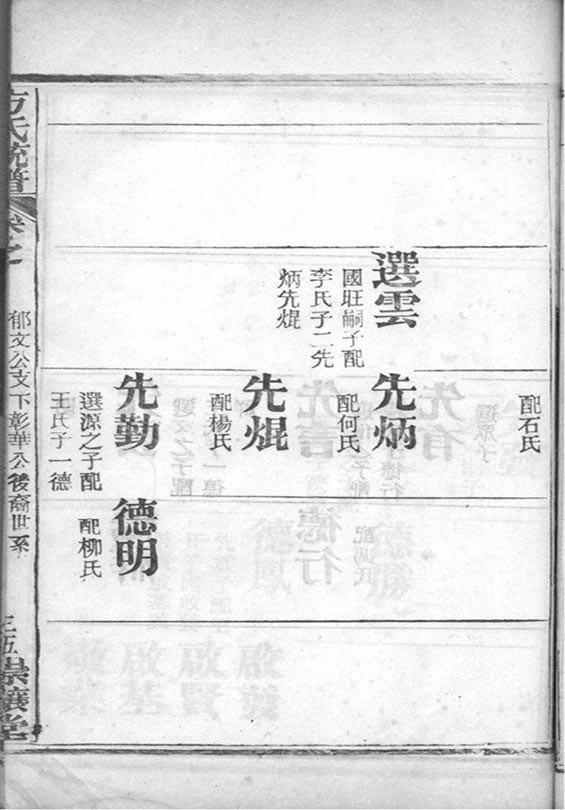 配石氏
選雲
國旺嗣子配
李氏子二先
炳先焜
先炳
配何氏
先焜
配楊氏
先勤
選源之子配
王氏子一德
德明
配柳氏
方氏統譜
卷之
郁文公支下彰華公後裔世系
三五
崇讓堂